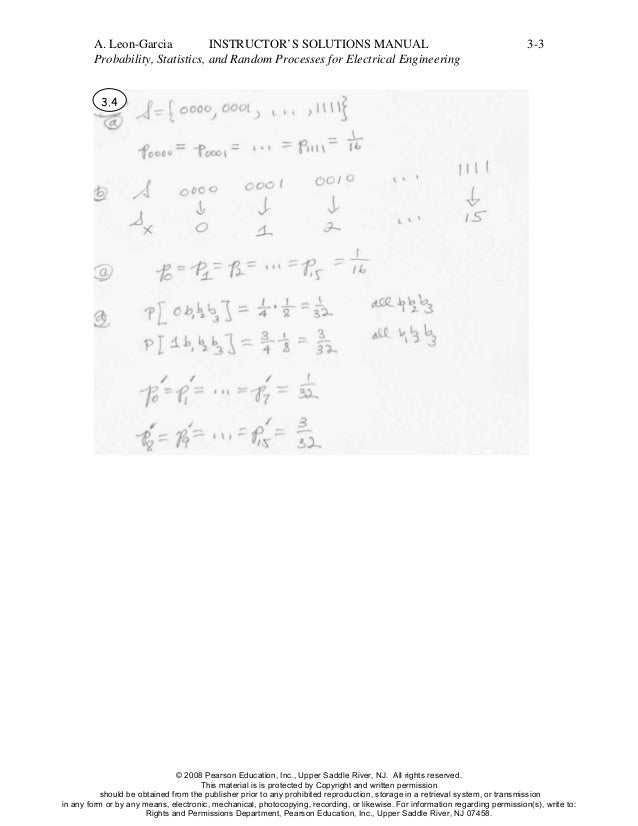 A. Leon-Garcia INSTRUCTOR'S SOLUTIONS MANUAL 3-3
Probability, Statistics, and Random Processes for Electrical Engineering
3.4
ⓐ S = {0000, 0001, ..., 1111}
p0000 = p0001 = ... = p1111 = 1/16
ⓑ S 0000 0001 0010 ... 1111
↓ ↓ ↓ ↓
Sx 0 1 2 ... 15
p0 = p1 = p2 = ... = p15 = 1/16
P[0b1b2b3] = 1/4 · 1/8 = 1/32 all b1b2b3
P[1b1b2b3] = 3/4 · 1/8 = 3/32 all b1b2b3
p0' = p1' = ... = p7' = 1/32
p8' = p9' = ... = p15' = 3/32
© 2008 Pearson Education, Inc., Upper Saddle River, NJ. All rights reserved.
This material is is protected by Copyright and written permission
should be obtained from the publisher prior to any prohibited reproduction, storage in a retrieval system, or transmission
in any form or by any means, electronic, mechanical, photocopying, recording, or likewise. For information regarding permission(s), write to:
Rights and Permissions Department, Pearson Education, Inc., Upper Saddle River, NJ 07458.